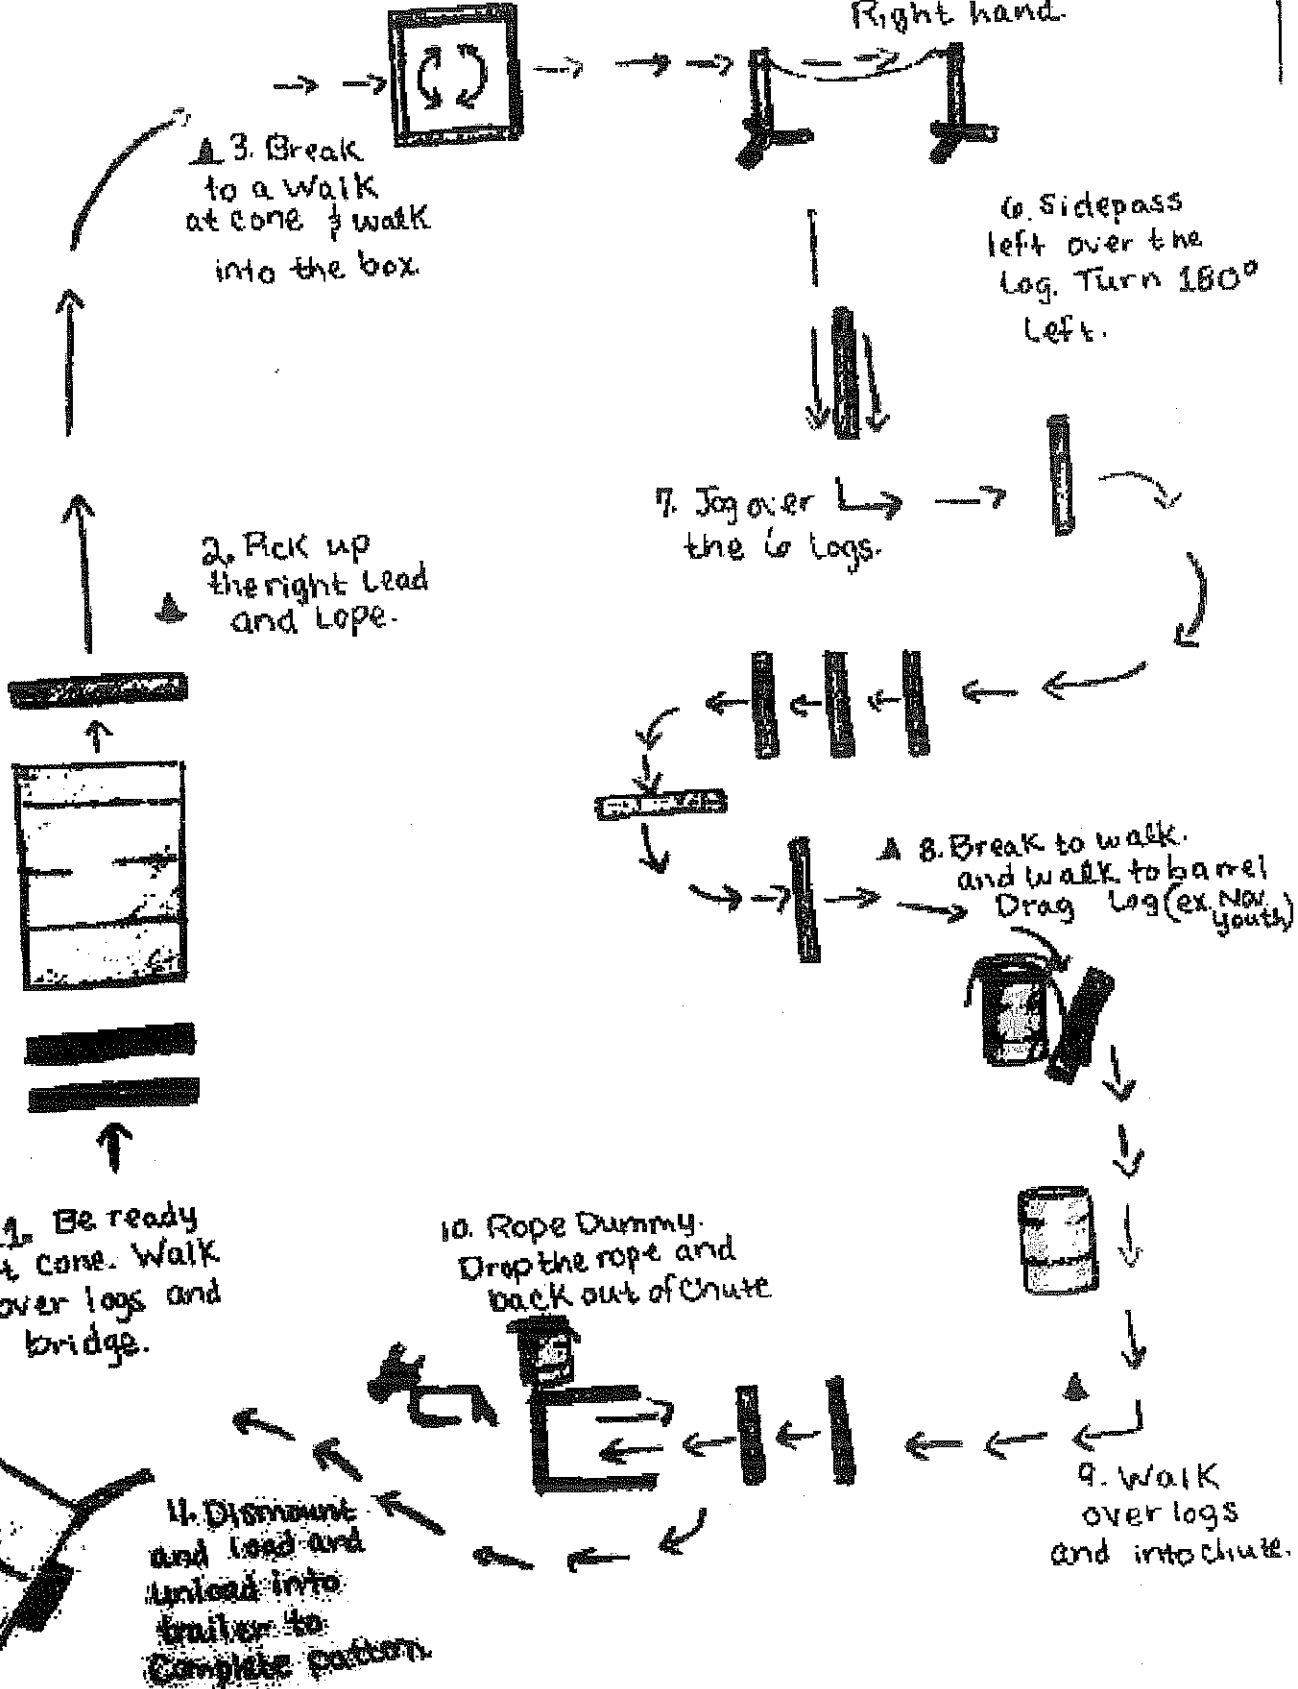 Right hand.
3. Break
to a walk
at cone & walk
into the box.
6. Sidepass
left over the
Log. Turn 180°
Left.
2. Pick up
the right Lead
and Lope.
7. Jog over
the 6 Logs.
8. Break to walk.
and walk to barrel
Drag Log (ex. Nov.
youth)
1. Be ready
t cone. Walk
over logs and
bridge.
10. Rope Dummy.
Drop the rope and
back out of Chute
9. Walk
over logs
and into chute.
11. Dismount
and load and
unload into
trailer to
Complete pattern.